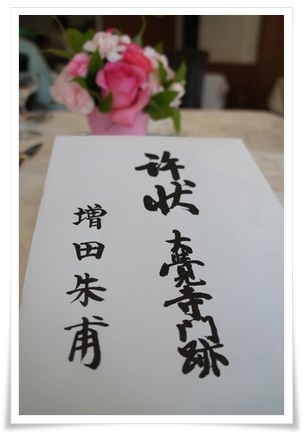 許状
大覺寺門跡
増田朱甫